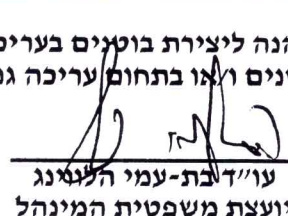 הנה ליצירת בוטנים בערים
נים ו/או בתחום עריכה
עו"ד בת-עמי
יועצת משפטית המינהל